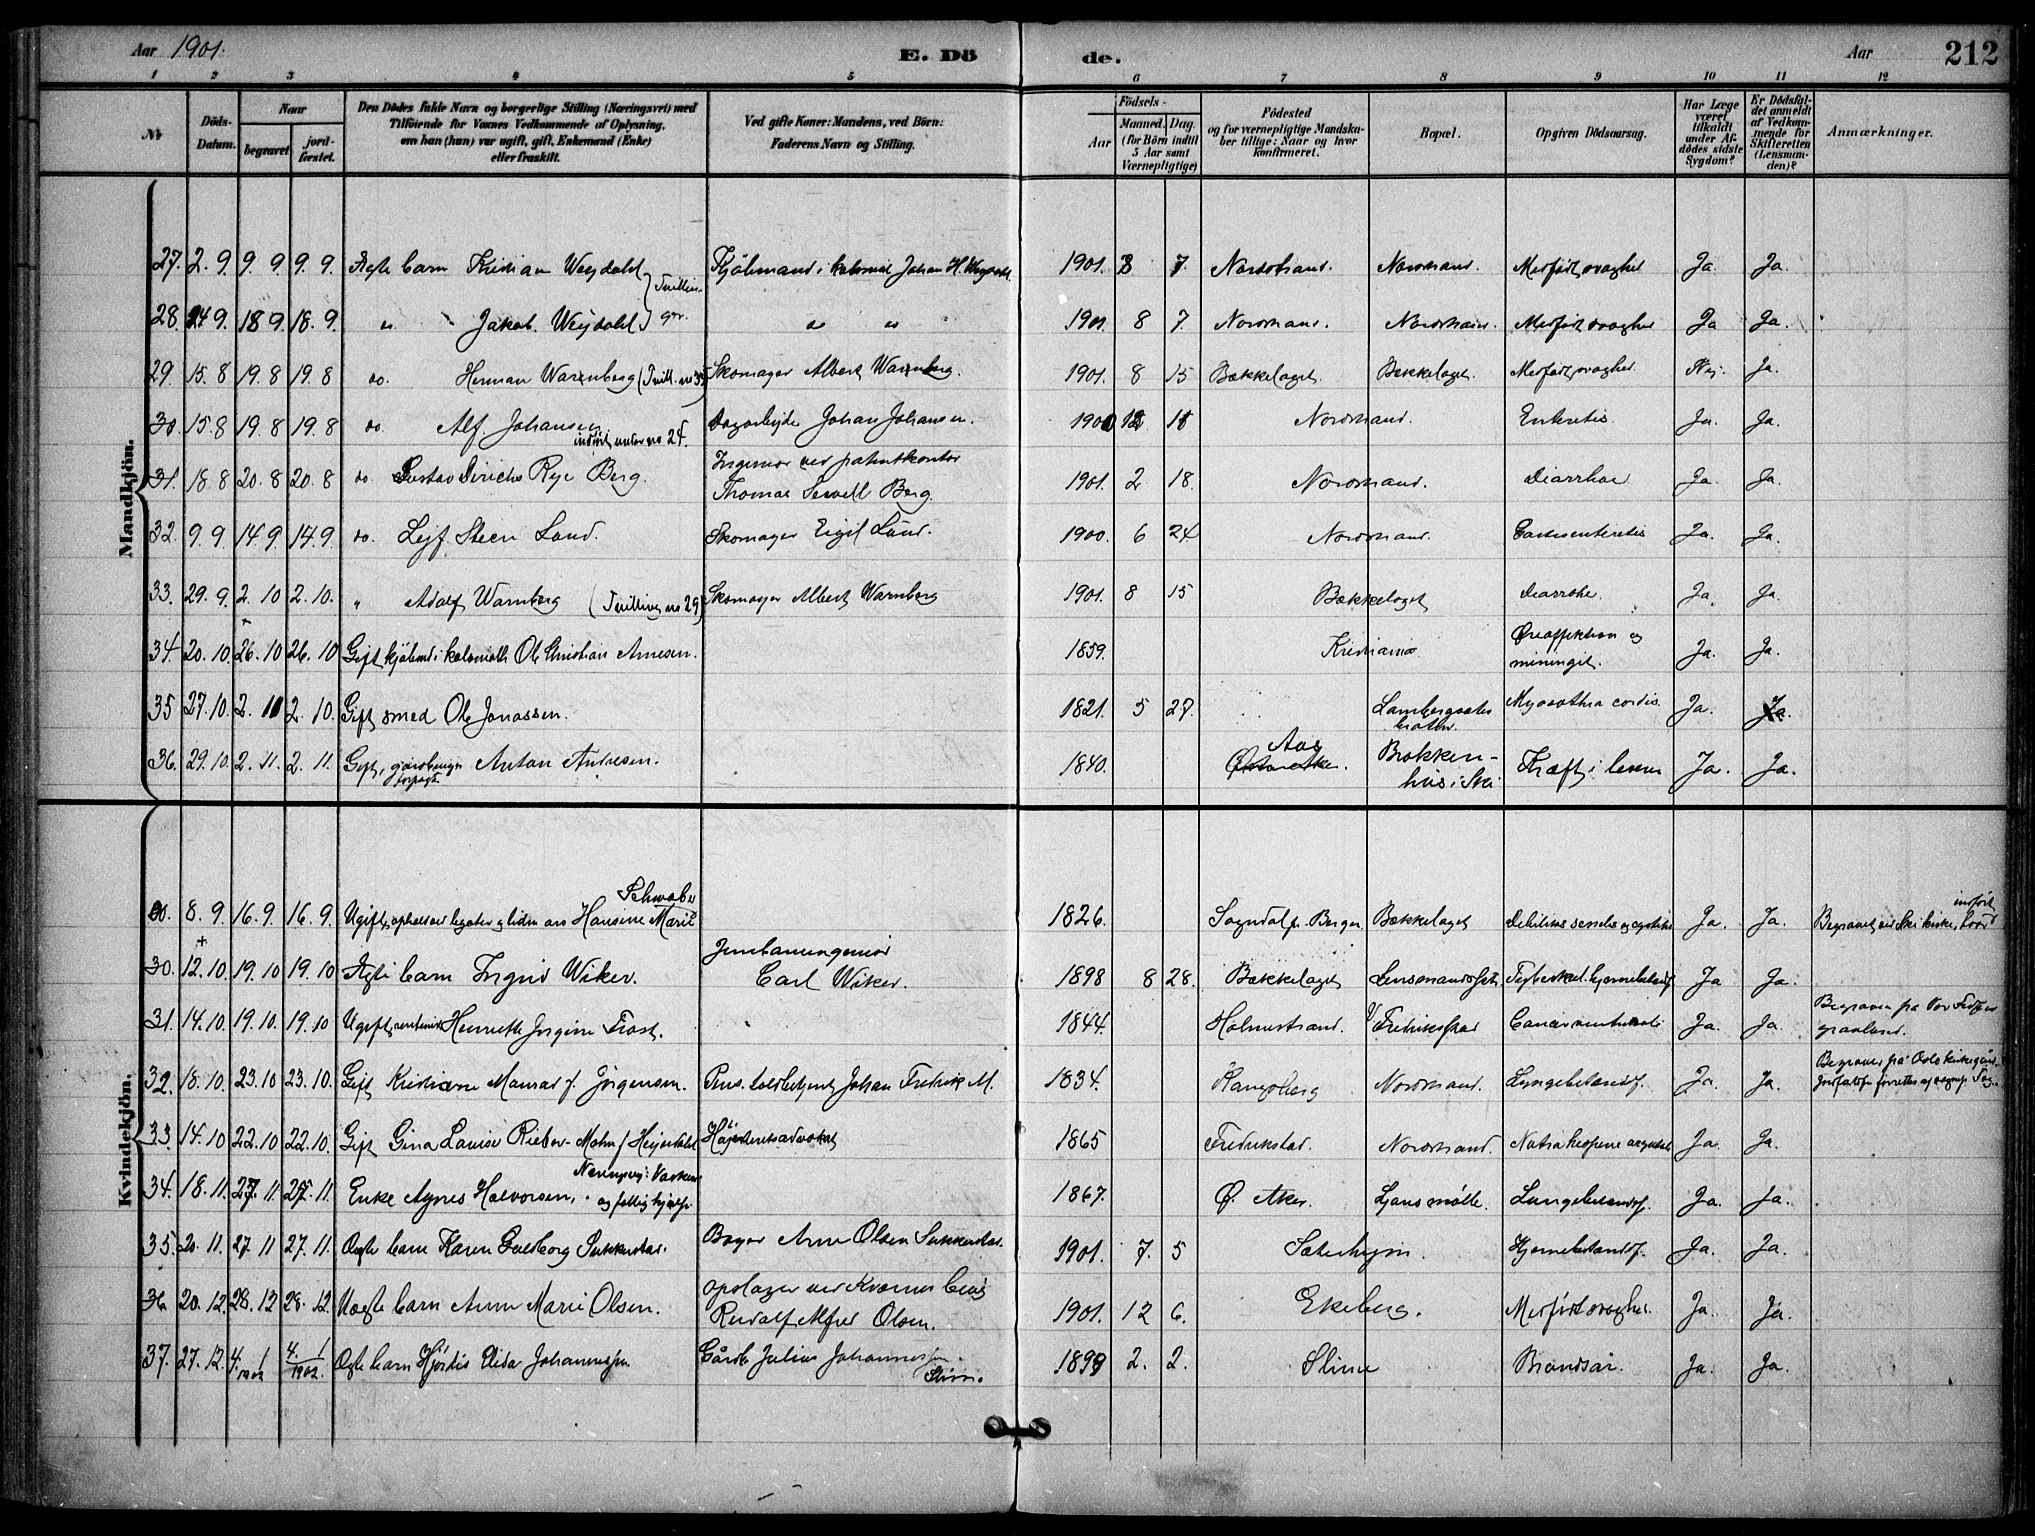 Aar 1901. E. Dö de. Aar 212
1 2 3 4 5 6 7 8 9 10 11 12
No
Döds-Datum.
Naar begravet jordfæstet.
Den Dödes fulde Navn og borgerlige Stilling (Næringsvei) med Tilföiende for Voxnes Vedkommende af Oplysning, om han (hun) var ugift, gift, Enkemand (Enke) eller fraskilt.
Ved gifte Koner: Mandens, ved Börn: Faderens Navn og Stilling.
Födsels-
Aar
Maaned. Dag.
(for Börn indtil 5 Aar samt Værnepligtige)
Födested og for værnepligtige Mandskaber tillige: Naar og hvor konfirmeret.
Bopæl.
Opgiven Dödsaarsag.
Har Læge været tilkaldt under Afdödes sidste Sygdom?
Er Dödsfaldet anmeldt af Vedkommende for Skifteretten (Lensmanden)?
Anmærkninger.
Mandkjön.
27. 2. 9 9. 9 9. 9. Ægte barn Kristian Weydahl } Tvillin- Kjøbmand i kolonial Johan H. Weydahl 1901. 8 7. Nordstrand. Nordstrand. Medfødt svaghed Ja. Ja.
28. 14 9. 18 9. 18. 9. " Jakob Weydahl ger. " " 1901. 8 7. Nordstrand. Nordstrand. Medfødt svaghed Ja Ja.
29. 15. 8 19. 8 19. 8 do. Herman Warnberg (Tvill. no 33) Skomager Albert Warnberg. 1901. 8 15 Bækkelaget. Bækkelaget. Medfødt svaghed. Nej. Ja.
30. 15. 8 19. 8 19. 8 do. Alf Johansen indført under no 24. Dagarbejder Johan Johansen. 1900 12 11 Nordstrand. Enteritis Ja. Ja.
31. 18. 8 20. 8 20. 8 do Gustav Dirichs Rye Berg. Ingeniør ved patentkontor
Thomas Sewell Berg. 1901. 2 18. Nordstrand. Diarrhoe Ja. Ja.
32. 9. 9 14. 9 14. 9. do. Leif Steen Lund. Skomager Eigil Lund. 1900. 6 24 Nordstrand. Gastroenteritis Ja. Ja.
33. 29. 9. 2. 10 2. 10. " Adolf Warnberg (Tvilling no 29) Skomager Albert Warnberg 1901. 8 15 Bækkelaget Diarrohe. Ja Ja.
34. 20. 10. 26. 10 26. 10 Gift kjøbmd i kolonialh. Ole Christian Arnesen. 1859. Kristiania Øreaffektion og
miningit. Ja. Ja.
35 27. 10. 2. 11 2. 10. Gift smed Ole Jonassen. 1821. 5 27. Lambergsæter Myocathia cordis. Ja. Ja.
36. 29. 10. 2. 11. 2. 11. Gift, gårdbruger forpagt. Anton Andresen. 1840. Aas Brokken-
hus i Ski Kræft i leveren Ja. Ja.
Kvindekjön.
8. 9 16. 9 16. 9. Ugift, ophold ved legater og liden Hansine Marie Schwabe 1826. Sogndal pr. Bergen Bækkelaget Ja. Ja. Begravet ved Ski kirke, indført
30. 12. 10. 19. 10 19. 10 Ægte barn Ingrid Wiker. Jernbaneingeniør
Carl Wiker. 1898 8 28. Bækkelaget Lensmandsgård Tuberkul. hjernebetændf Ja Ja.
31. 14. 10. 19. 10. 19. 10 Ugift, rentenist Henriette Jørgine Frost. 1844. Holmestrand. Fredrikstad Cancer ventriculi Ja. Ja. Begraven på Vor Frelsers
gravlund.
32. 18. 10. 23. 10 23. 10. Gift Kristiane Manrad f. Jørgensen. Pens. toldbetjent Johan Fredrik M. 1834. Kongsberg Nordstrand. Lungebetændf. Ja. Ja. Begraves på Oslo kirkegård.
33 14. 10 22. 10 22. 10. Gift Gina Louise Rieber-Mohn f. Heyerdahl Højesteretsadvokat 1865 Fredrikstad. Nordstrand. Ja. Ja.
34. 18. 11. 27. 11. 27. 11. Enke Agnes Halvorsen. Næringsvej: Vasken
og fattighjælp. 1867. Ø. Aker. Ljans mølle. Lungebetændf. Ja. Ja.
35 20. 11. 27. 11 27. 11. Ægte barn Karen Guldborg Sukkestad. Bager Arne Olsen Sukkestad. 1901. 7. 5 Sæterhejm. Hjernebetændf. Ja. Ja.
36. 20. 12. 28. 12 28. 12. Uægte barn Anna Marie Olsen. opslager ved Kværner brug
Rudolf Alfred Olsen. 1901. 12 6. Ekeberg. Medfødt svaghed. Ja. Ja.
37. 27. 12. 4. 1 1902 4. 1 1902. Ægte barn Hjørdis Elida Johannessen Gårdb. Julius Johannessen.
Slime. 1899 2. 2. Slime Brandsår Ja. Ja.